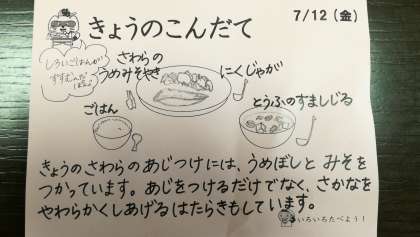 きょうのこんだて
7/12 (金)
しろいごはんが
すすむんだ
さわらの
うめみそやき
にくじゃが
ごはん
とうふのすましじる
きょうのさわらのあじつけには、うめぼしと みそを
つかっています。あじをつけるだけでなく、さかなを
やわらかくしあげるはたらきもしています。
いろいろたべよう！